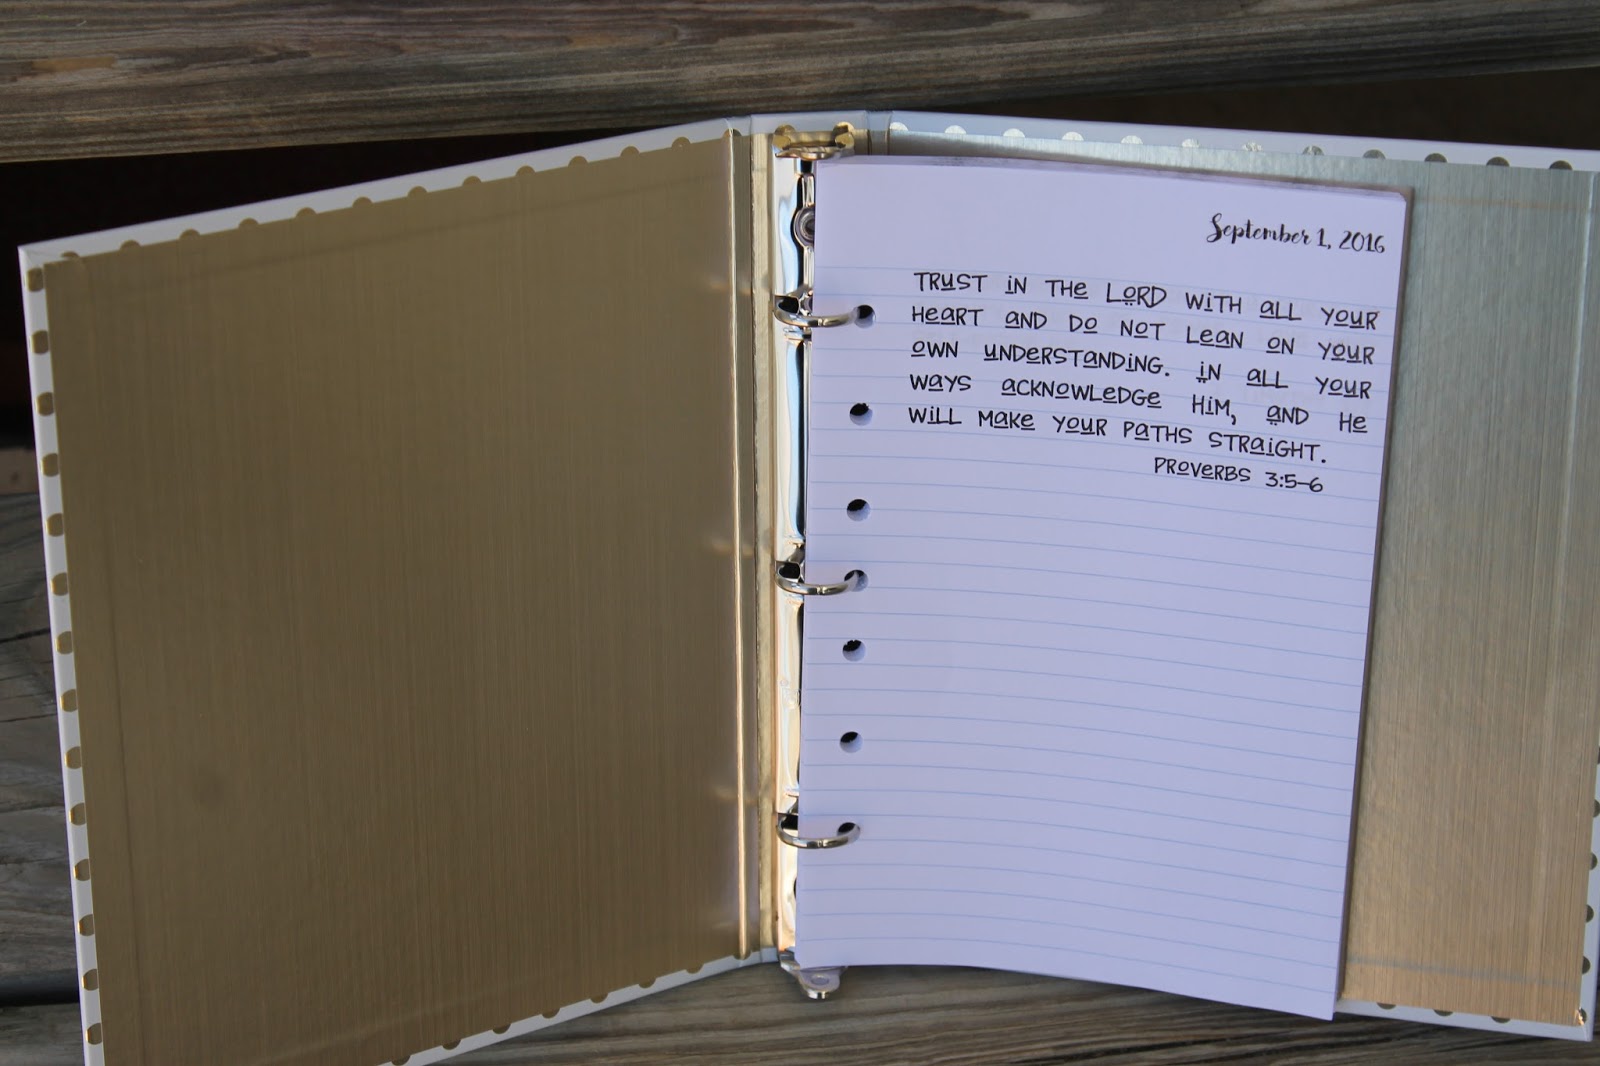 September 1, 2016
TRUST IN THE LORD WITH ALL YOUR
HEART AND DO NOT LEAN ON YOUR
OWN UNDERSTANDING. IN ALL YOUR
WAYS ACKNOWLEDGE HIM, AND HE
WILL MAKE YOUR PATHS STRAIGHT.
PROVERBS 3:5-6